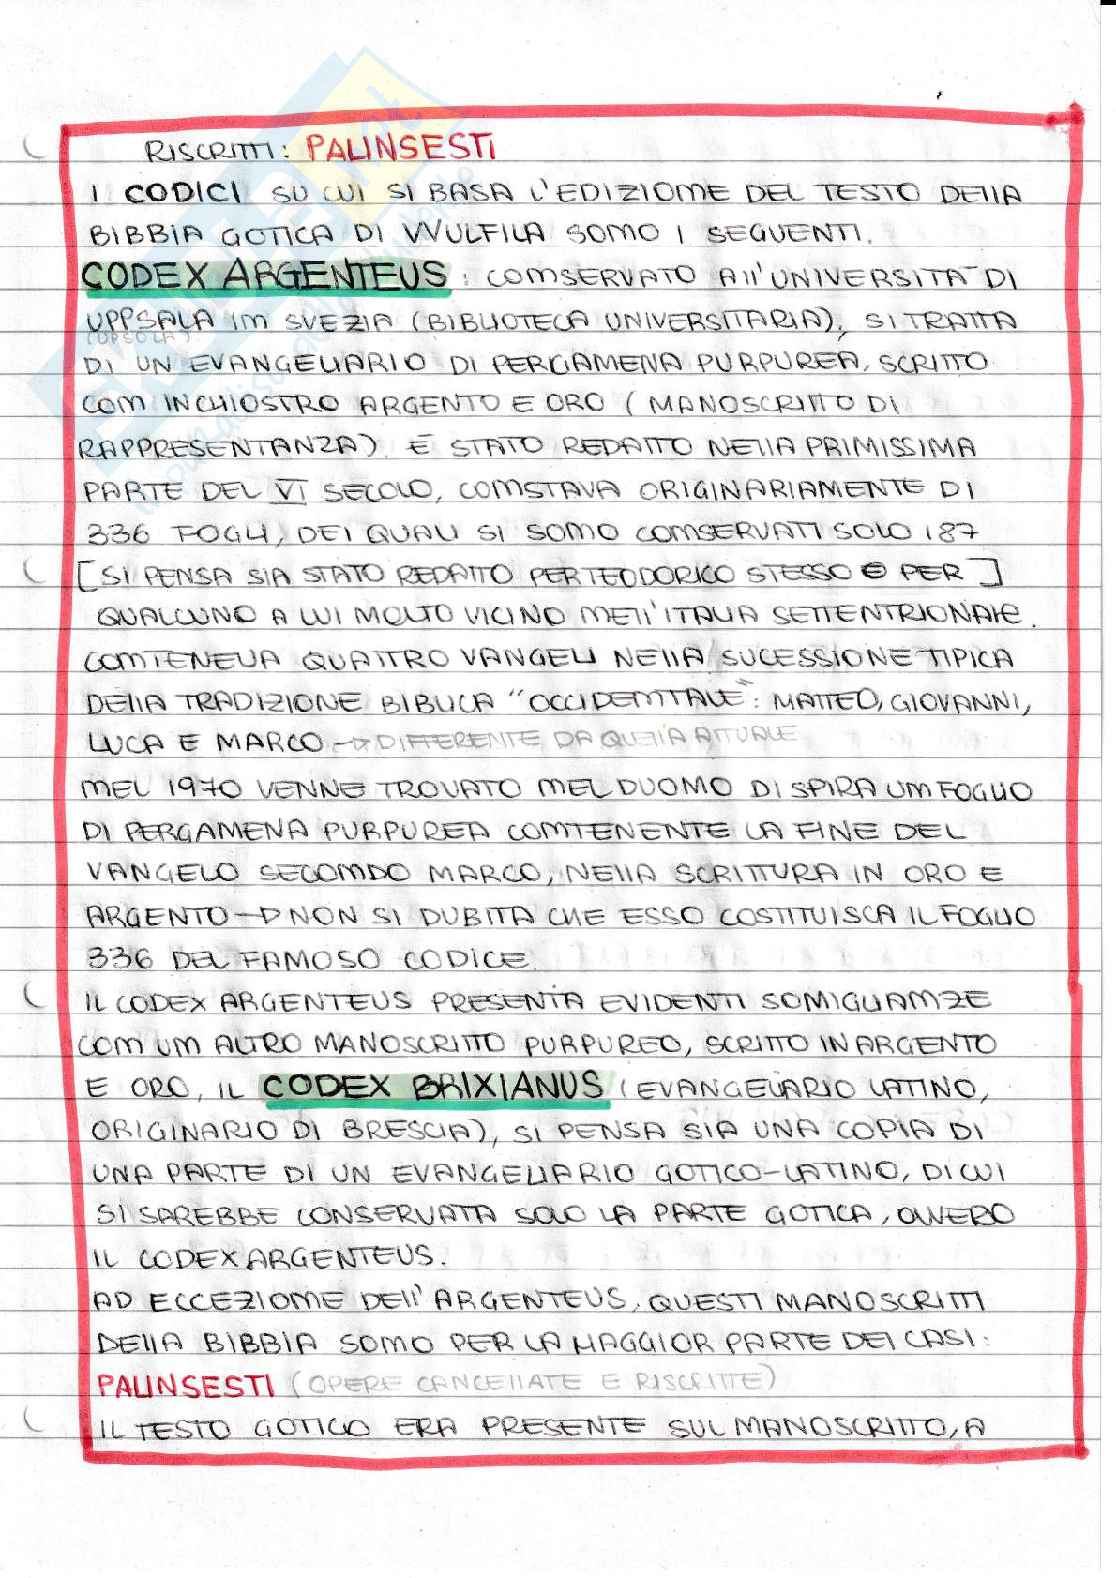 RISCRITTI: PALINSESTI
I CODICI SU CUI SI BASA L'EDIZIOME DEL TESTO DELLA
BIBBIA GOTICA DI WULFILA SOMO I SEGUENTI.
CODEX ARGENTEUS: COMSERVATO ALL'UNIVERSITA' DI
UPPSALA IM SVEZIA (BIBLIOTECA UNIVERSITARIA), SI TRATTA
(UPSOLA)
DI UN EVANGELIARIO DI PERGAMENA PURPUREA, SCRITTO
COM INCHIOSTRO ARGENTO E ORO (MANOSCRITTO DI
RAPPRESENTANZA). È STATO REDATTO NELLA PRIMISSIMA
PARTE DEL VI SECOLO, COMSTAVA ORIGINARIAMENTE DI
336 FOGLI, DEI QUALI SI SOMO COMSERVATI SOLO 187
[SI PENSA SIA STATO REDATTO PER TEODORICO STESSO O PER]
QUALCUNO A LUI MOLTO VICINO MELL'ITALIA SETTENTRIONALE.
COMTENEVA QUATTRO VANGELI NELLA SUCESSIONE TIPICA
DELLA TRADIZIONE BIBLICA "OCCIDEMTALE": MATTEO, GIOVANNI,
LUCA E MARCO → DIFFERENTE DA QUELLA ATTUALE
MEL 1970 VENNE TROVATO MEL DUOMO DI SPIRA UM FOGLIO
DI PERGAMENA PURPUREA COMTENENTE LA FINE DEL
VANGELO SECOMDO MARCO, NELLA SCRITTURA IN ORO E
ARGENTO → NON SI DUBITA CHE ESSO COSTITUISCA IL FOGLIO
336 DEL FAMOSO CODICE.
IL CODEX ARGENTEUS PRESENTA EVIDENTI SOMIGLIAMZE
COM UM ALTRO MANOSCRITTO PURPUREO, SCRITTO IN ARGENTO
E ORO, IL CODEX BRIXIANUS (EVANGELIARIO LATINO,
ORIGINARIO DI BRESCIA), SI PENSA SIA UNA COPIA DI
UNA PARTE DI UN EVANGELIARIO GOTICO-LATINO, DI CUI
SI SAREBBE CONSERVATA SOLO LA PARTE GOTICA, OVVERO
IL CODEX ARGENTEUS.
AD ECCEZIOME DELL'ARGENTEUS, QUESTI MANOSCRITTI
DELLA BIBBIA SOMO PER LA MAGGIOR PARTE DEI CASI:
PALINSESTI (OPERE CANCELLATE E RISCRITTE)
IL TESTO GOTICO ERA PRESENTE SUL MANOSCRITTO, A